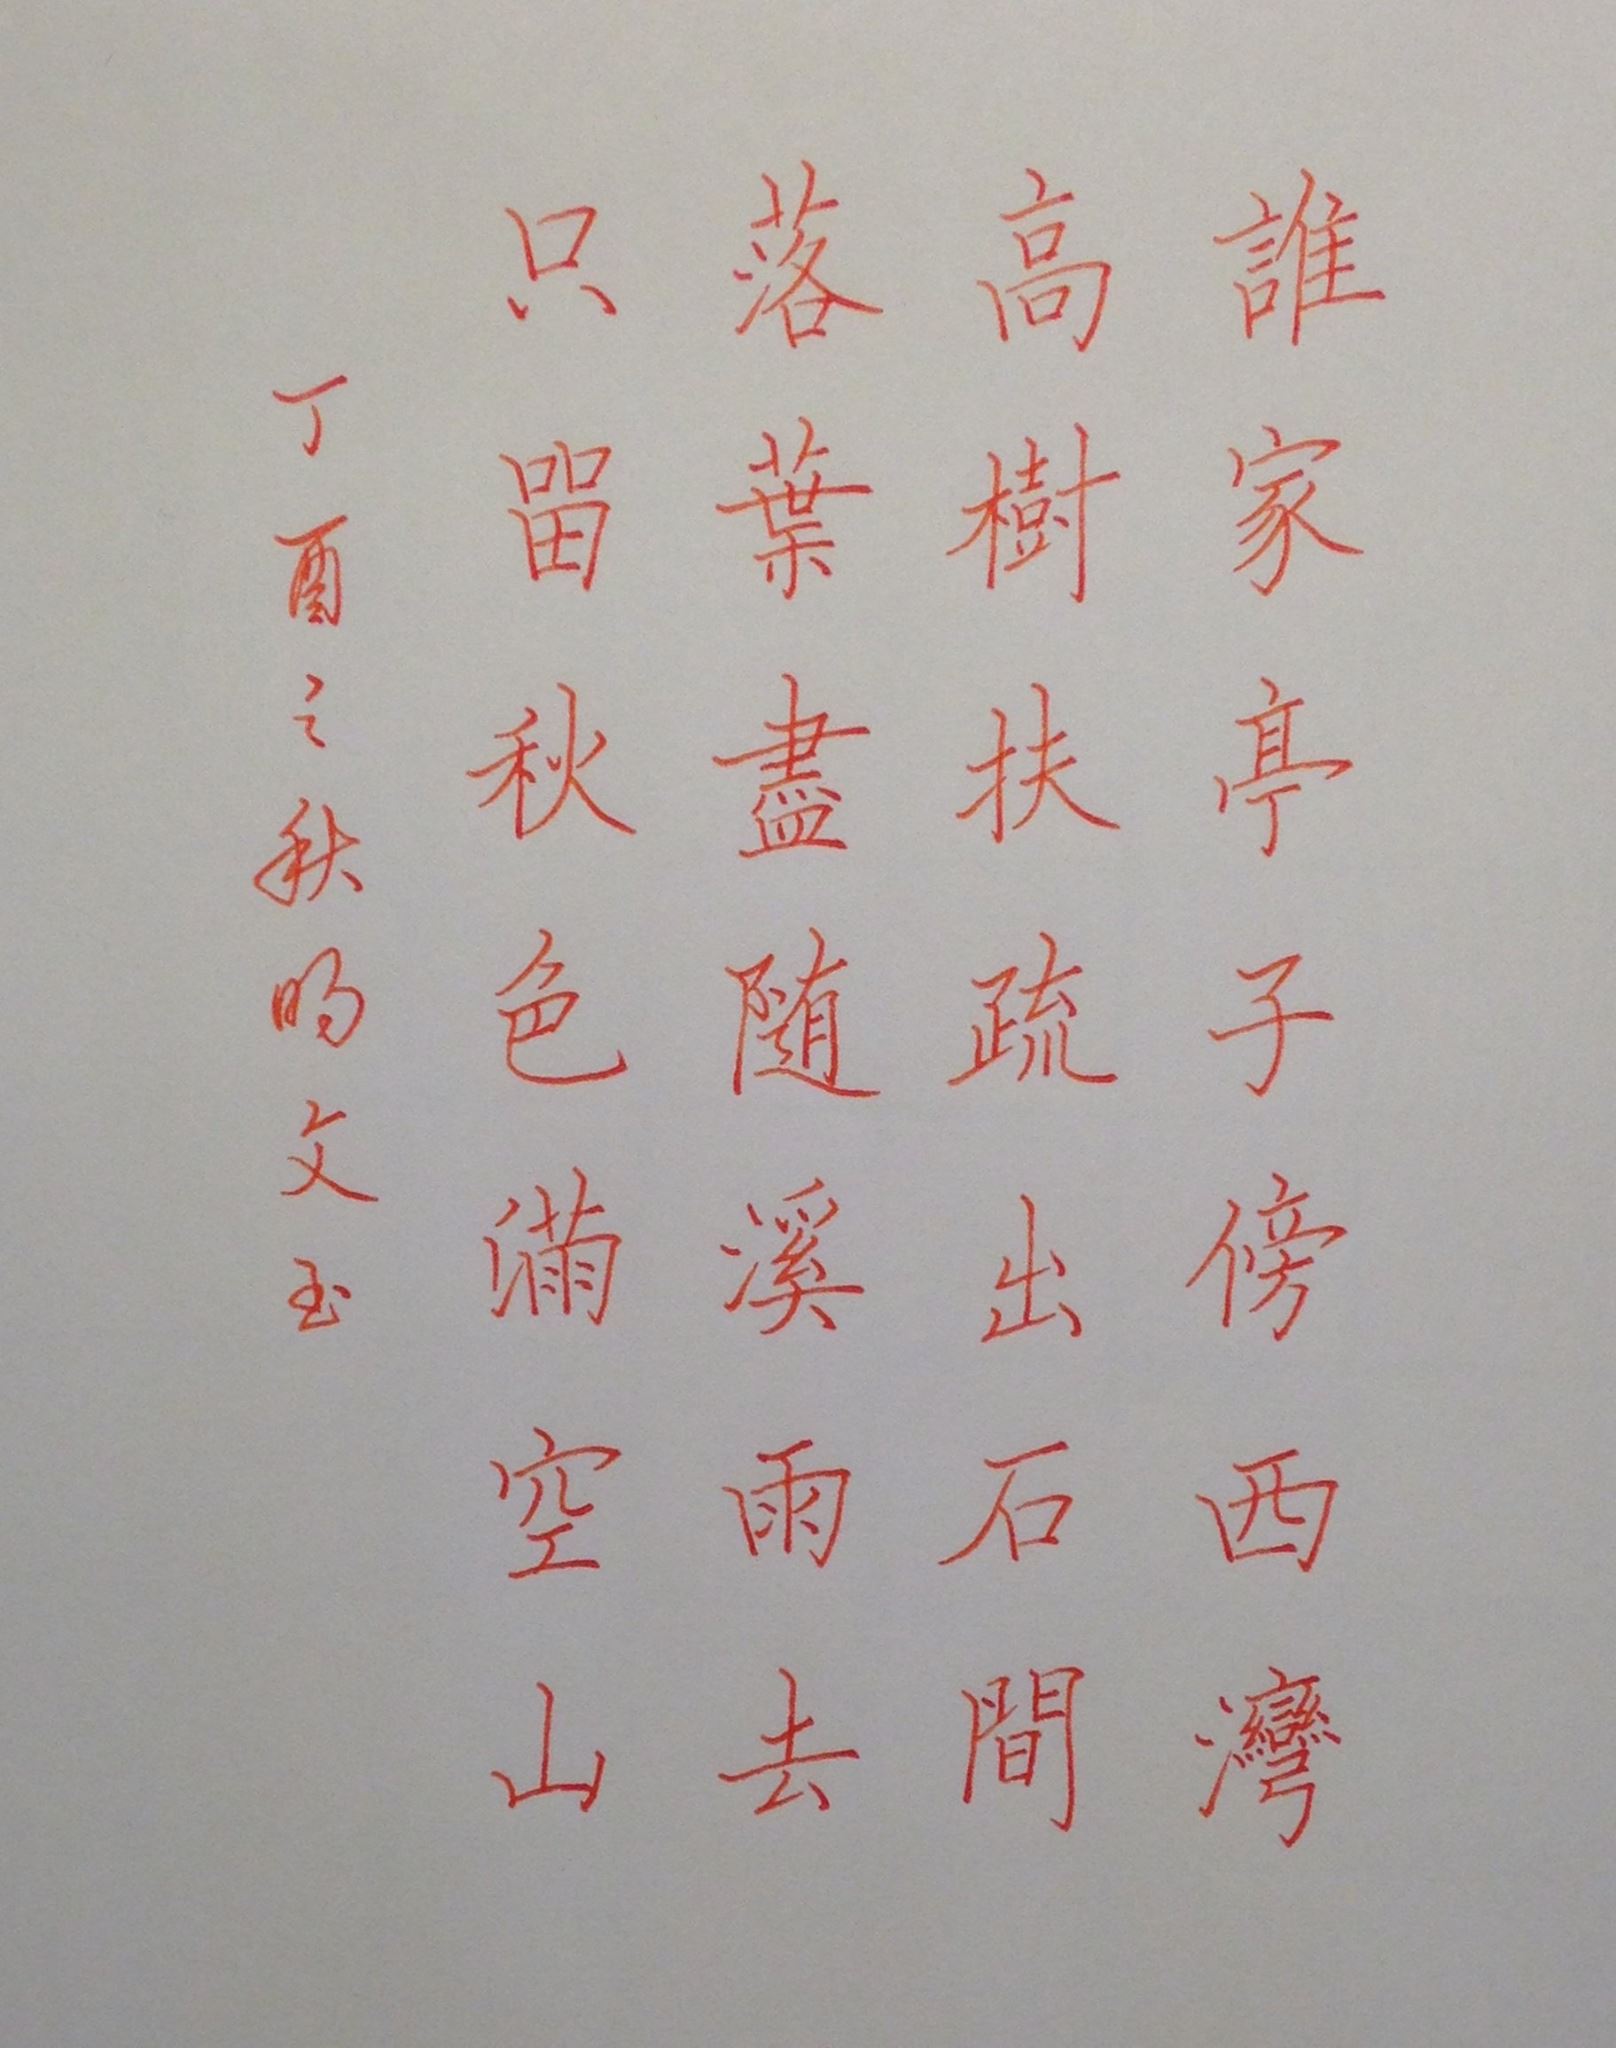 誰家亭子傍西灣
高樹扶疏出石間
落葉盡随溪雨去
只留秋色滿空山
丁酉之秋昀文玉